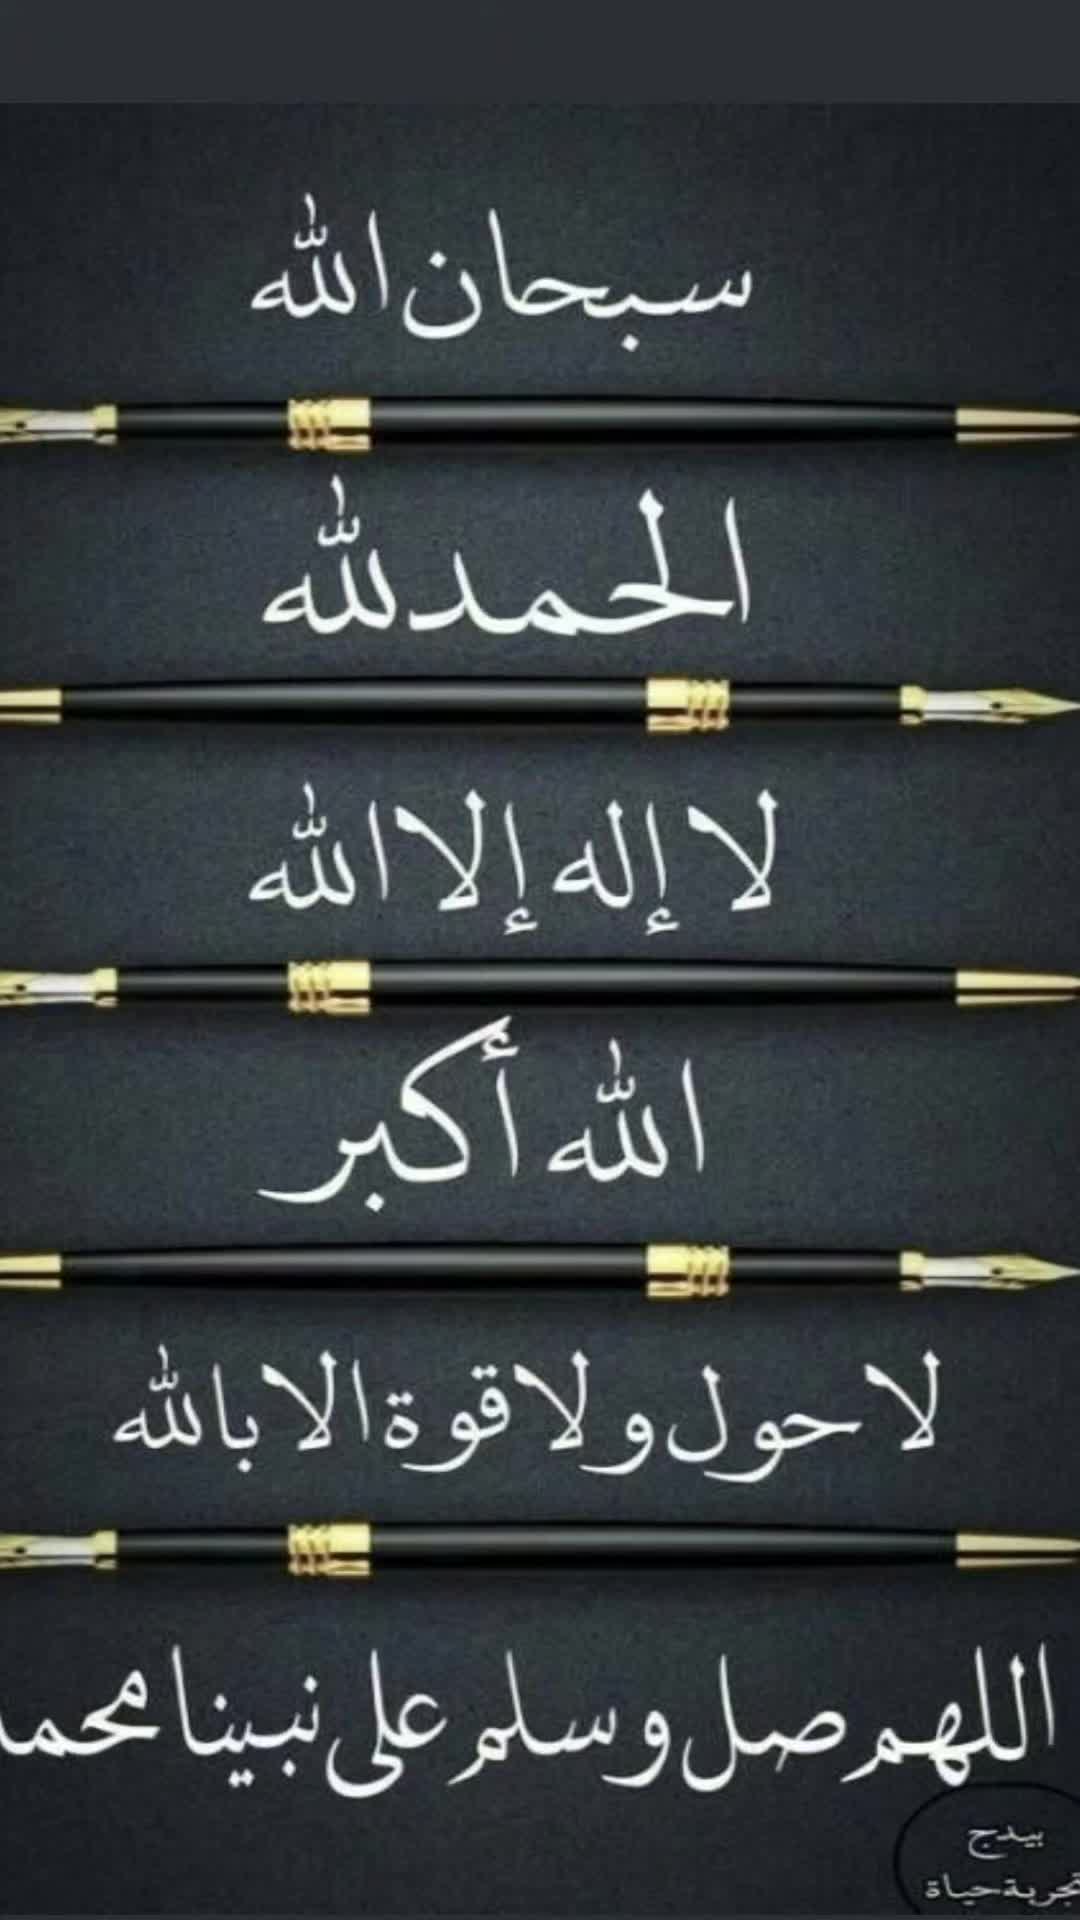 سبحان الله
الحمدلله
لا إله إلا الله
الله أكبر
لا حول ولا قوة الا بالله
اللهم صل وسلم على نبينا محمد
بيدج
تجربة حياة